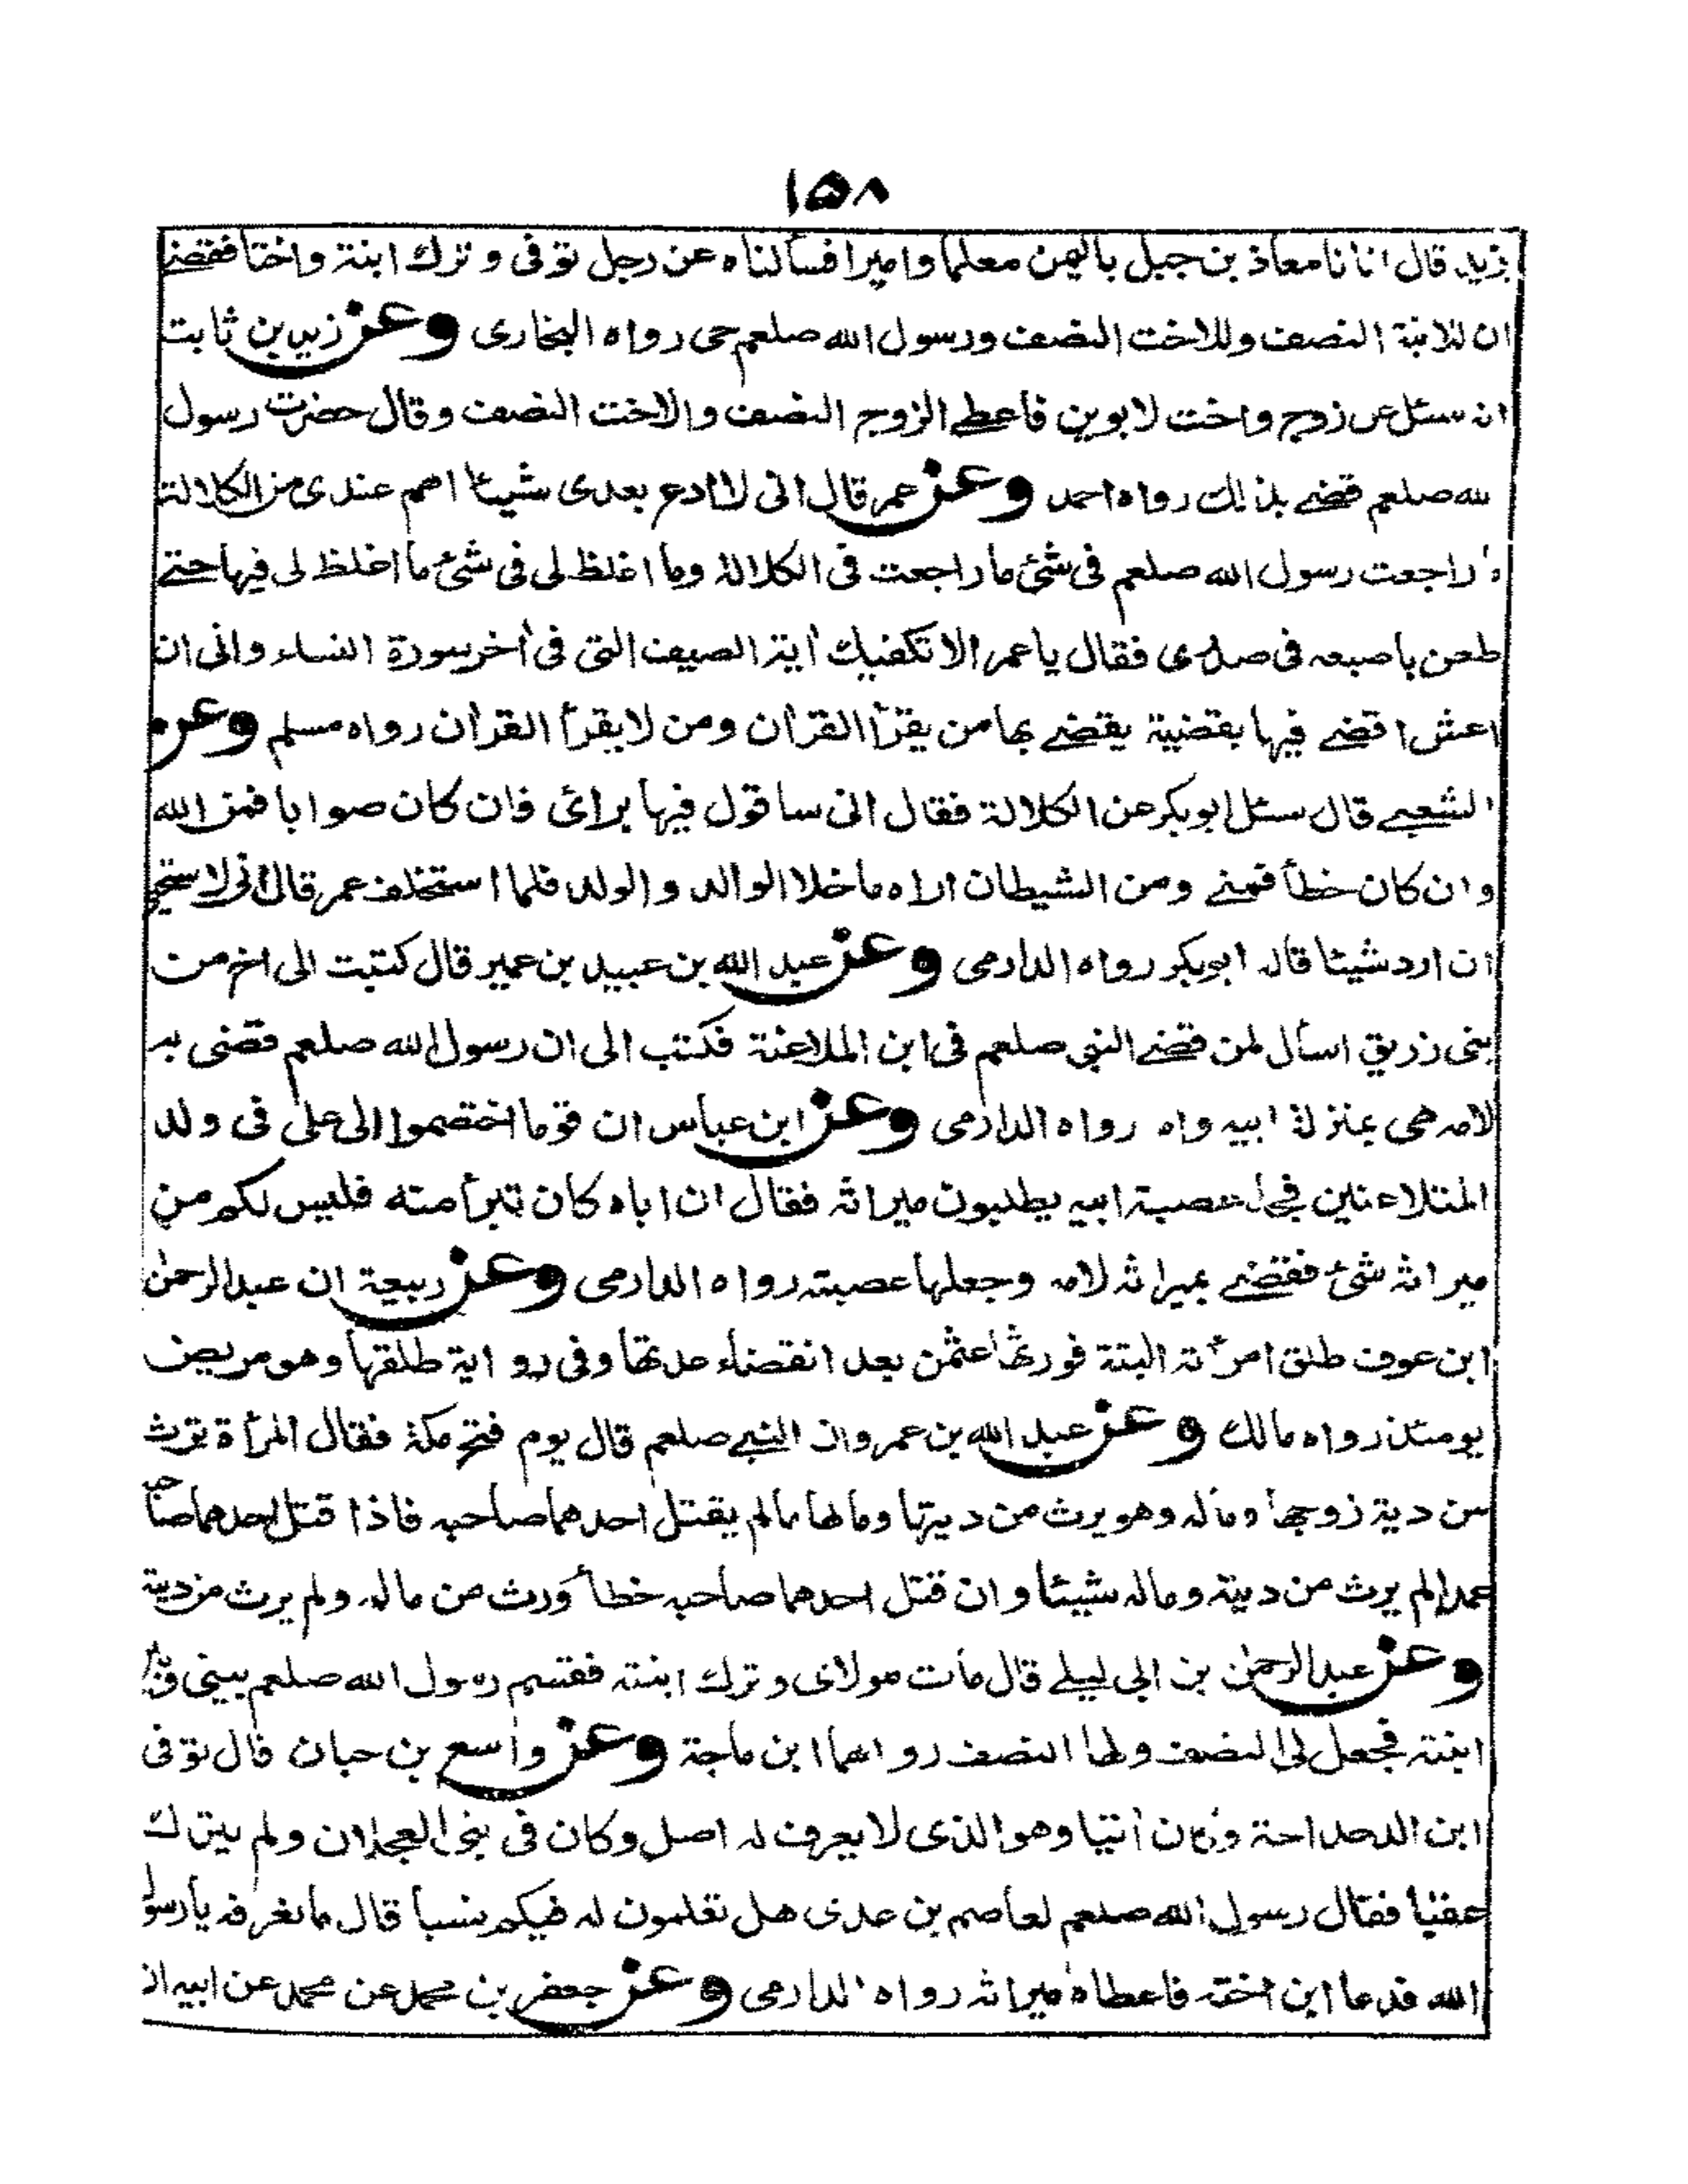 ١٥٨
يزيد قال اتانا معاذ بن جبل باليمن معلما واميرا فسألناه عن رجل توفى و ترك ابنة واختا فقضے
ان للابنة النصف وللاخت النصف ورسول الله صلعم حى رواه البخارى وعن زيد بن ثابت
انه سئل عن زوج واخت لابوين فاعطے الزوج النصف والاخت النصف وقال حضرت رسول
الله صلعم قضے بذالك رواه احمد وعن عمر قال انى لا ادع بعدى شيئا اهم عندى من الكلالة
ما راجعت رسول الله صلعم فى شئ ما راجعت فى الكلالة وما اغلظ لى فى شئ ما اغلظ لى فيها حتے
طعن باصبعه فى صدرى فقال يا عمر الا تكفيك أية الصيف التى فى أخر سورة النساء وانى ان
اعش اقضے فيها بقضية يقضے بها من يقرأ القرأن ومن لا يقرأ القرأن رواه مسلم وعن
الشعبے قال سئل ابو بكر عن الكلالة فقال انى ساقول فيها برائى فان كان صوابا فمن الله
وان كان خطأ فمنے ومن الشيطان اراه ما خلا الوالد و الولد فلما استخلف عمر قال انى لاستحيى
ان ارد شيئا قاله ابو بكر رواه الدارمى وعن عبد الله بن عبيد بن عمير قال كتبت الى اخ من
بنى زريق اسأل لمن قضے النبى صلعم فى ابن الملاعنة فكتب الى ان رسول الله صلعم قضى به
لامه هى بمنزلة ابيه وامه رواه الدارمى وعن ابن عباس ان قوما اختصموا الى على فى ولد
المتلاعنين فجاء عصبة ابيه يطلبون ميراثه فقال ان اباه كان تبرأ منه فليس لكم من
ميراثه شئ فقضے بميراثه لامه وجعلها عصبته رواه الدارمى وعن ربيعة ان عبد الرحمٰن
ابن عوف طلق امرأته البتة فورثها عثمٰن بعد انقضاء عدتها وفى رواية طلقها وهو مريض
يومئذ رواه مالك وعن عبد الله بن عمرو ان النبے صلعم قال يوم فتح مكة فقال المرأة ترث
من دية زوجها وماله وهو يرث من ديتها ومالها مالم يقتل احدهما صاحبه فاذا قتل احدهما صاحبه
عمدا لم يرث من ديته وماله شيئا و ان قتل احدهما صاحبه خطأ ورث من ماله ولم يرث من ديته
وعن عبد الرحمٰن بن ابى ليلے قال مات مولاى و ترك ابنته فقسم رسول الله صلعم بينى وبين
ابنته فجعل لى النصف ولها النصف رواهما ابن ماجة وعن واسع بن حبان قال توفى
ابن الدحداحة وكان أتيا وهو الذى لا يعرف له اصل وكان فى بنى العجلان ولم يترك
عقبا فقال رسول الله صلعم لعاصم بن عدى هل تعلمون له فيكم نسبا قال ما نعرفه يا رسول
الله فدعا ابن اخته فاعطاه ميراثه رواه الدارمى وعن جعفر بن محمد عن محمد عن ابيه ان